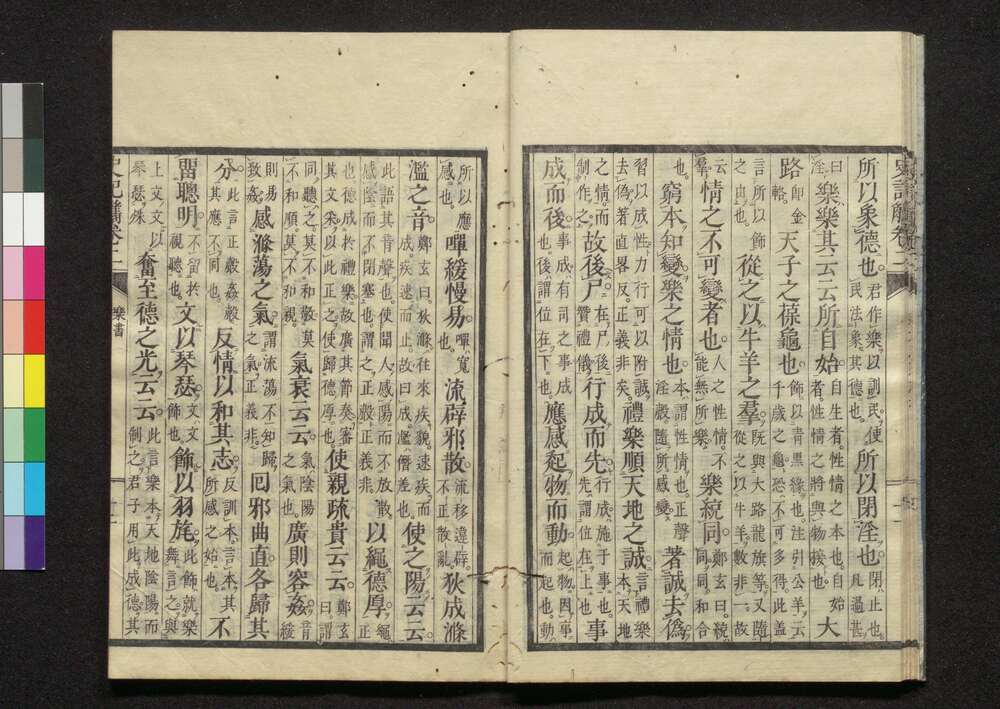 所以象德也君作樂以訓民使民法象其德也所以閉淫也閉止也凡過甚
曰淫樂樂其云云所自始自生者性情之本也自始者性情之將與物接也大
路卽金輅天子之葆龜也飾以青黑緣也注引公羊云千歲之龜恐不可多得此蓋
言所以飾之由也從之以牛羊之羣既與大路龍旂等又隨從之以牛羊數非一故
云羣情之不可變者也人之性情不能無所樂樂統同鄭玄曰統同同和合
也窮本知變樂之情也本謂性情也正聲淫聲隨所感變著誠去僞
習以成性力行可以附誠去僞著直畧反正義非矣禮樂順天地之誠言禮樂本天地
之情而制作之故後尸在尸後贊禮儀行成而先行成施于事也先謂位在上也事
成而後事成有司之事成也後謂位在下也應感起物而動起物因事而起也動
所以應感也嘽緩慢易嘽寬也流辟邪散流移違辟不正散亂狄成滌
濫之音鄭玄曰狄滌往來疾貌速疾而成疾速而止故曰成濫僭差也使之陽云云
此語其音聲也使聞人感陽而不放散感陰而不閉塞也謂之正聲正義非以繩德厚繩
也德成於禮樂故廣其節奏審其文采以此正之使歸德厚也使親疏貴云云鄭玄曰謂
同聽之莫不和敬莫不和順莫不和親氣衰云云氣陰陽之氣也廣則容姦音緩
則易致姦感滌蕩之氣謂流蕩不知歸之氣正義非回邪曲直各歸其
分此言正聲姦聲其應不同也反情以和其志反訓本言本其所感之始也不
留聰明不留於視聽也文以琴瑟文文飾也飾以羽旄此飾就樂舞言之與
上文文以琴瑟殊奮至德之光云云此言樂本天地陰陽而制之君子用此成德其
樂書